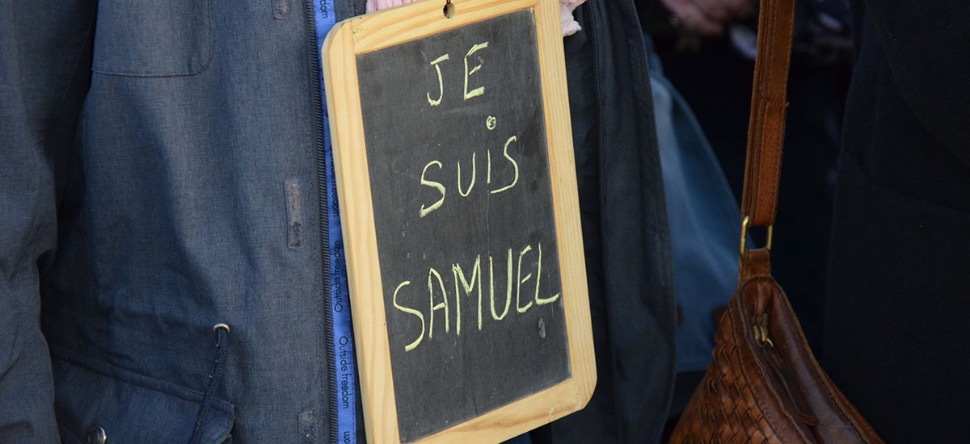 JE
SUiS
SAMUEL
Outside freedom